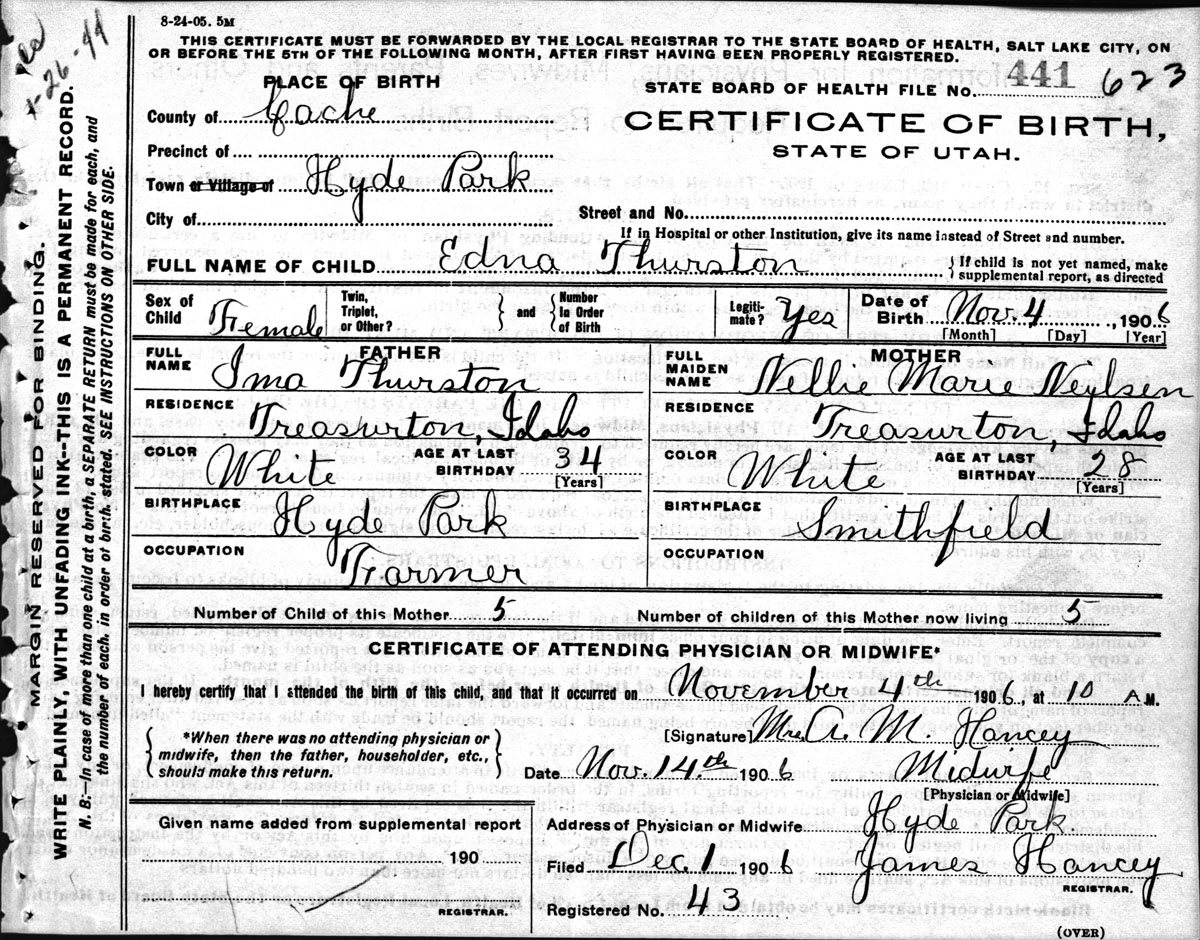 8-24-05. 5M
THIS CERTIFICATE MUST BE FORWARDED BY THE LOCAL REGISTRAR TO THE STATE BOARD OF HEALTH, SALT LAKE CITY, ON
OR BEFORE THE 5TH OF THE FOLLOWING MONTH, AFTER FIRST HAVING BEEN PROPERLY REGISTERED.
PLACE OF BIRTH
STATE BOARD OF HEALTH FILE No. 441 623
County of Cache
CERTIFICATE OF BIRTH,
STATE OF UTAH.
Precinct of
Town or Village of Hyde Park
City of
Street and No.
If in Hospital or other Institution, give its name instead of Street and number.
FULL NAME OF CHILD Edna Thurston
{ If child is not yet named, make
supplemental report, as directed
Sex of Child Female
Twin, Triplet, or Other? } and { Number In Order of Birth
Legiti-mate? Yes
Date of Birth Nov. 4, 1906
[Month] [Day] [Year]
FATHER
FULL NAME Ima Thurston
RESIDENCE Treasurton, Idaho
COLOR White AGE AT LAST BIRTHDAY 34
[Years]
BIRTHPLACE Hyde Park
OCCUPATION Farmer
MOTHER
FULL MAIDEN NAME Nellie Marie Neilsen
RESIDENCE Treasurton, Idaho
COLOR White AGE AT LAST BIRTHDAY 28
[Years]
BIRTHPLACE Smithfield
OCCUPATION
Number of Child of this Mother 5 Number of children of this Mother now living 5
CERTIFICATE OF ATTENDING PHYSICIAN OR MIDWIFE*
I hereby certify that I attended the birth of this child, and that it occurred on November 4th 1906, at 10 A.M.
{ *When there was no attending physician or
midwife, then the father, householder, etc.,
should make this return. }
[Signature] Mrs. A. M. Hancey
Date Nov. 14th 1906 Midwife
[Physician or Midwife]
Given name added from supplemental report
190
REGISTRAR.
Address of Physician or Midwife Hyde Park
Filed Dec 1 1906 James Hancey
REGISTRAR.
Registered No. 43
(OVER)
MARGIN RESERVED FOR BINDING.
WRITE PLAINLY, WITH UNFADING INK--THIS IS A PERMANENT RECORD.
N. B.--In case of more than one child at a birth, a SEPARATE RETURN must be made for each, and
the number of each, in order of birth, stated. SEE INSTRUCTIONS ON OTHER SIDE.